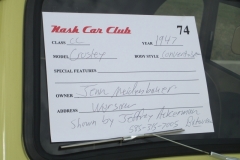 Nash Car Club 74
CLASS CC YEAR 1947
MODEL Crosley BODY STYLE Convertible
SPECIAL FEATURES
OWNER Jenn
ADDRESS Warsaw
Shown by Jeffrey Ackerman